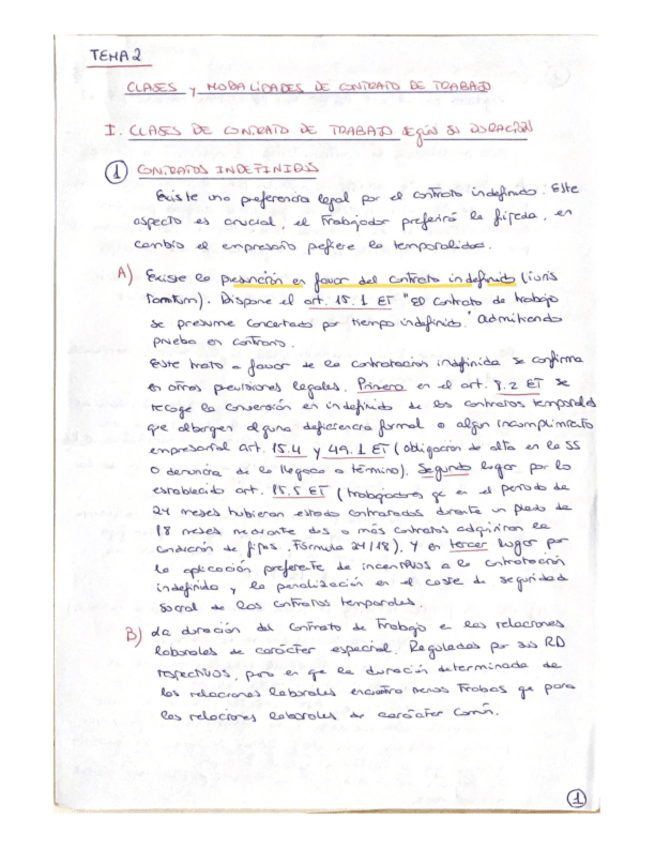 TEMA 2
CLASES y MODALIDADES DE CONTRATO DE TRABAJO
I. CLASES DE CONTRATO DE TRABAJO SEGÚN SU DURACIÓN
1 CONTRATOS INDEFINIDOS
Existe una preferencia legal por el contrato indefinido. Este
aspecto es crucial, el Trabajador preferirá la fijeza, en
cambio el empresario prefiere la temporalidad.
A) Existe la presunción en favor del contrato indefinido (iuris
tamtum). Dispone el art. 15.1 ET "El contrato de trabajo
se presume concertado por tiempo indefinido." admitiendo
prueba en contrario.
Este trato a favor de la contratación indefinida se confirma
en otras previsiones legales. Primero en el art. 8.2 ET se
recoge la conversión en indefinido de los contratos temporales
que alberguen alguna deficiencia formal o algún incumplimiento
empresarial art. 15.4 y 49.1 ET (obligación de alta en la SS
o denuncia de la llegada a término). Segundo lugar por lo
establecido art. 15.5 ET (trabajadores qe en el periodo de
24 meses hubieran estado contratados durante un plazo de
18 meses mediante dos o más contratos adquirirán la
condición de fijos. Fórmula 24/18). Y en tercer lugar por
la aplicación preferente de incentivos a la contratación
indefinida y la penalización en el coste de seguridad
social de los contratos temporales.
B) La duración del Contrato de Trabajo en las relaciones
laborales de carácter especial. Reguladas por sus RD
respectivos, pero en qe la duración determinada de
las relaciones laborales encuentra menos Trabas qe para
las relaciones laborales de carácter común.
1